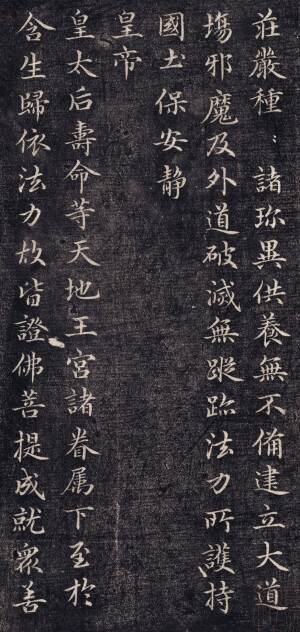 莊嚴種〻諸珎異供養無不俻建立大道
塲邪魔及外道破滅無蹤跡法力所護持
國土保安静
皇帝
皇太后壽命等天地王宮諸眷属下至於
含生歸依法力故皆證佛菩提成就衆善